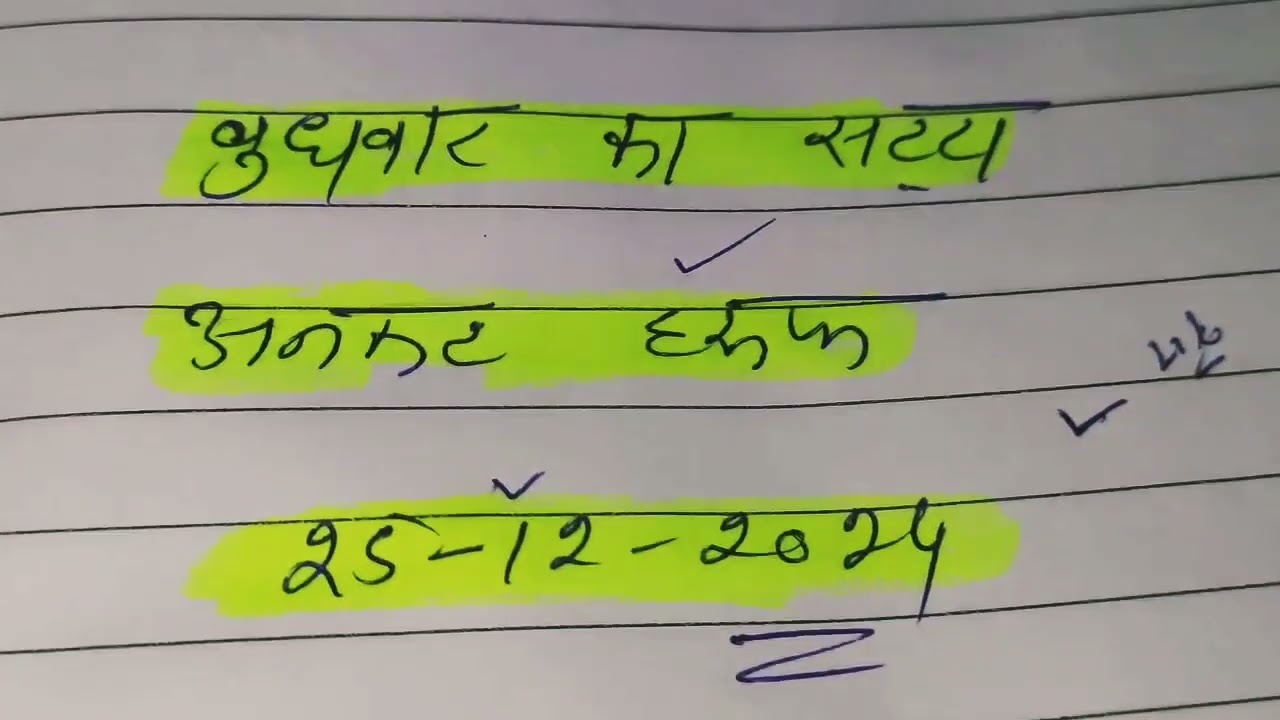 बुधवार का सट्टा
अनकट हरूफ
25-12-2024